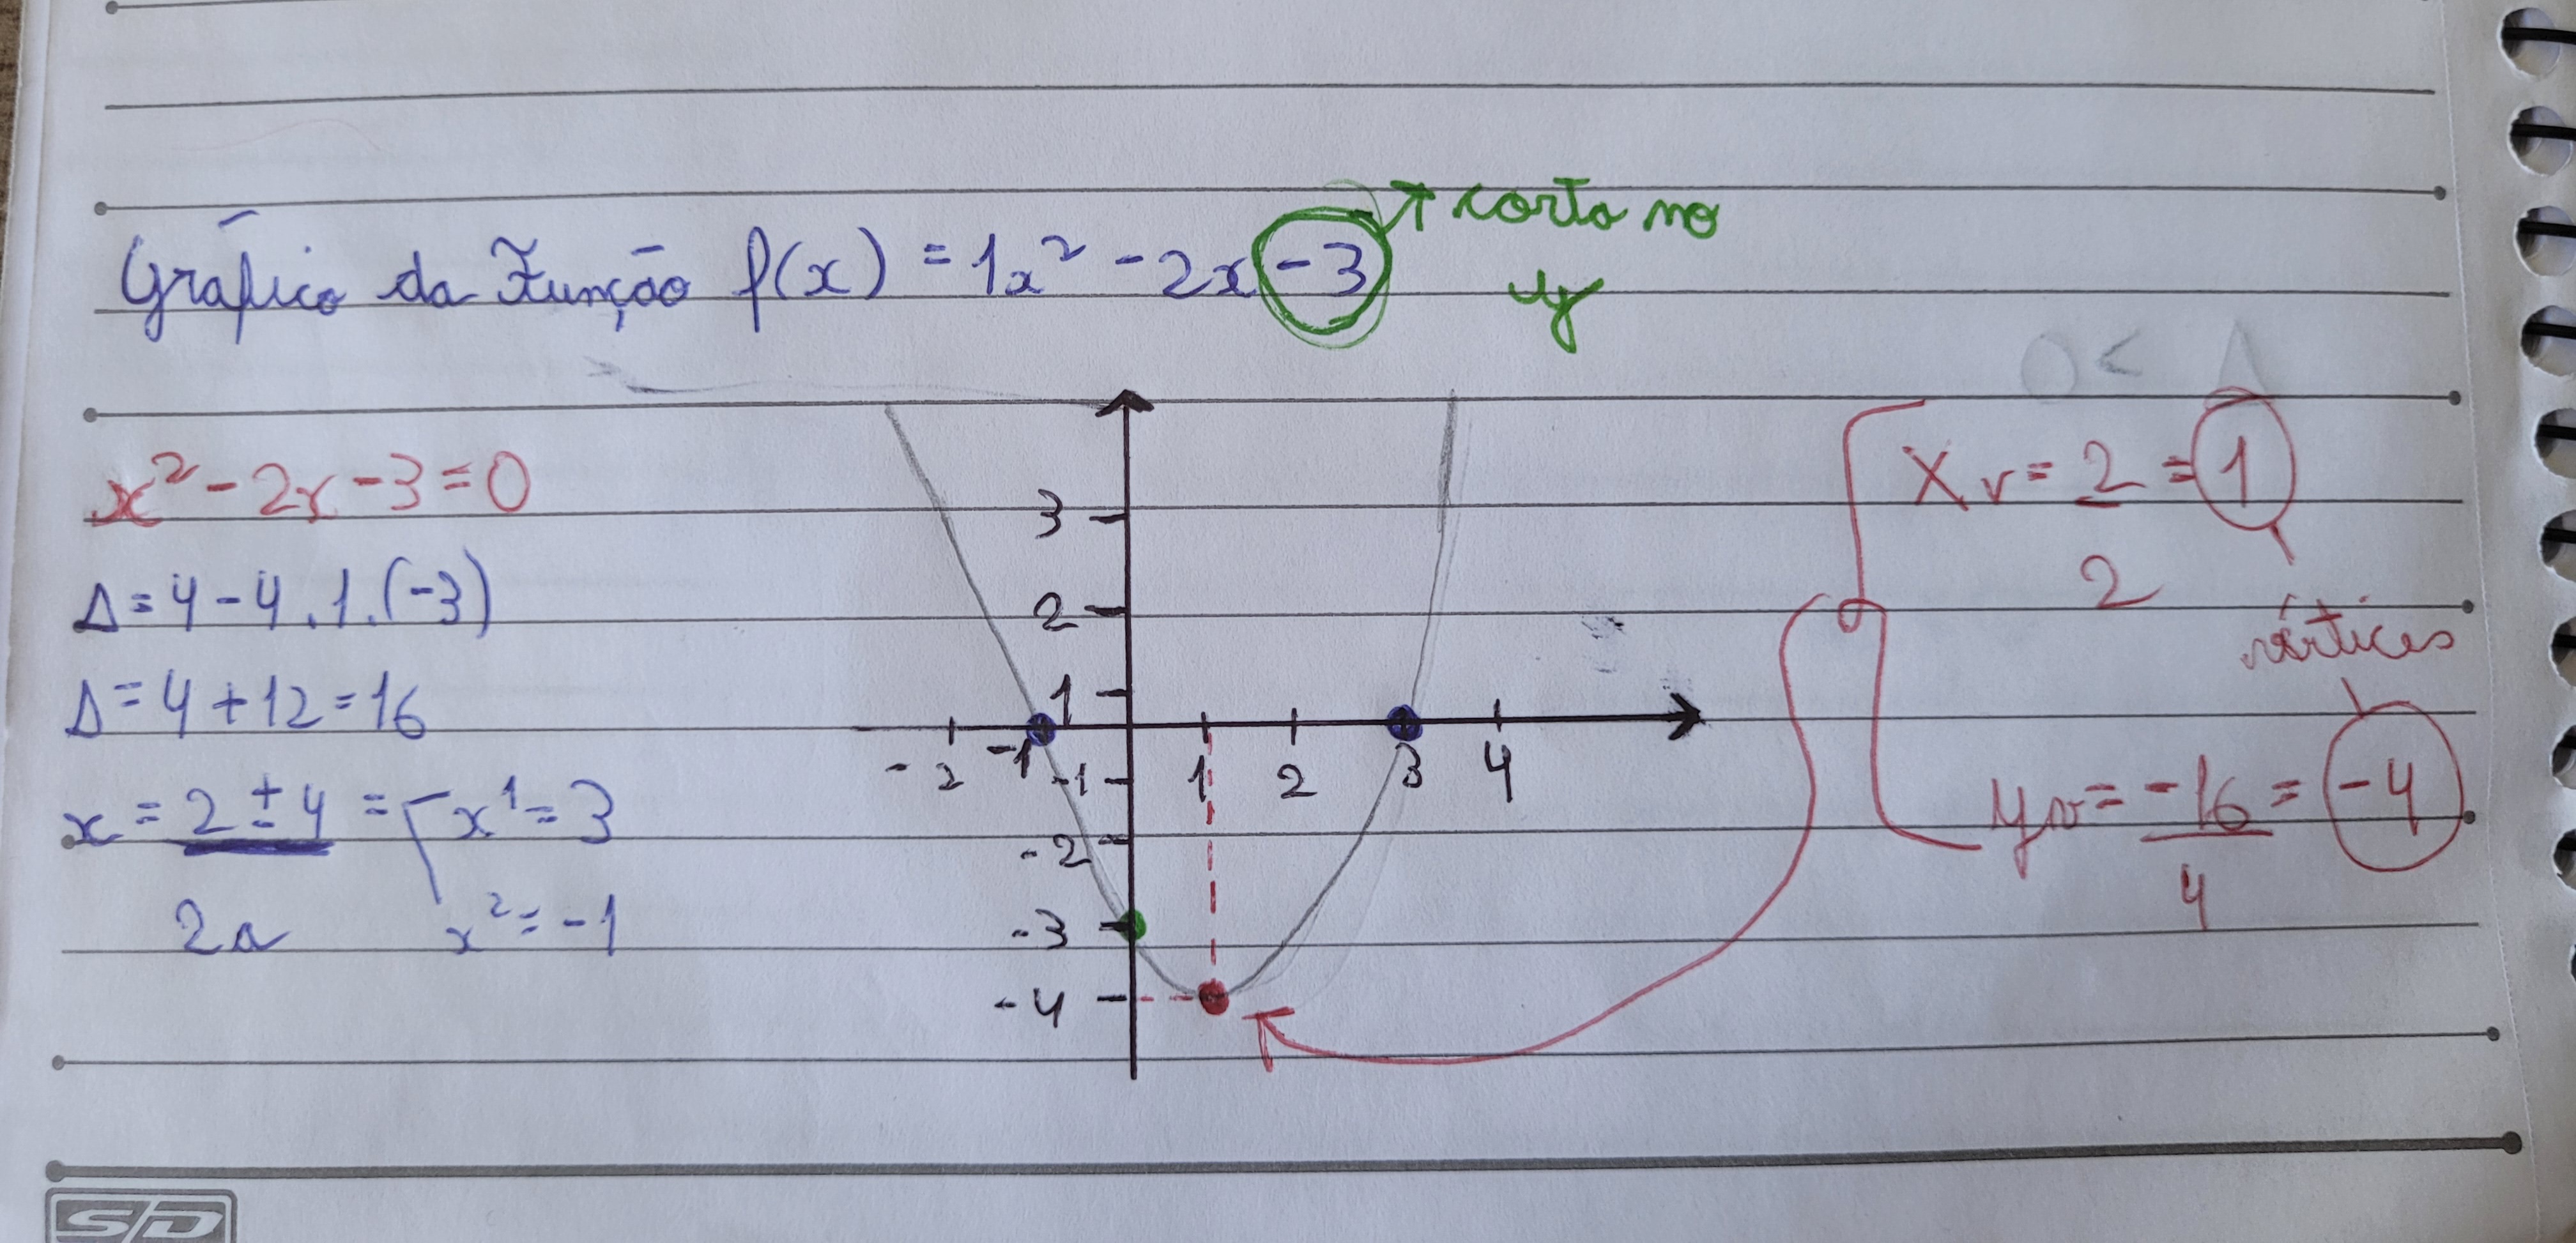 Gráfico da Função f(x) = 1x² - 2x - 3
corta no
y
x² - 2x - 3 = 0
Δ = 4 - 4 . 1 . (-3)
Δ = 4 + 12 = 16
x = 2 ± 4 = x¹ = 3
2a x² = -1
3
2
1
-2 -1 1 2 3 4
-1
-2
-3
-4
Xv = 2 = 1
2
vértices
yv = -16 = -4
4
SD